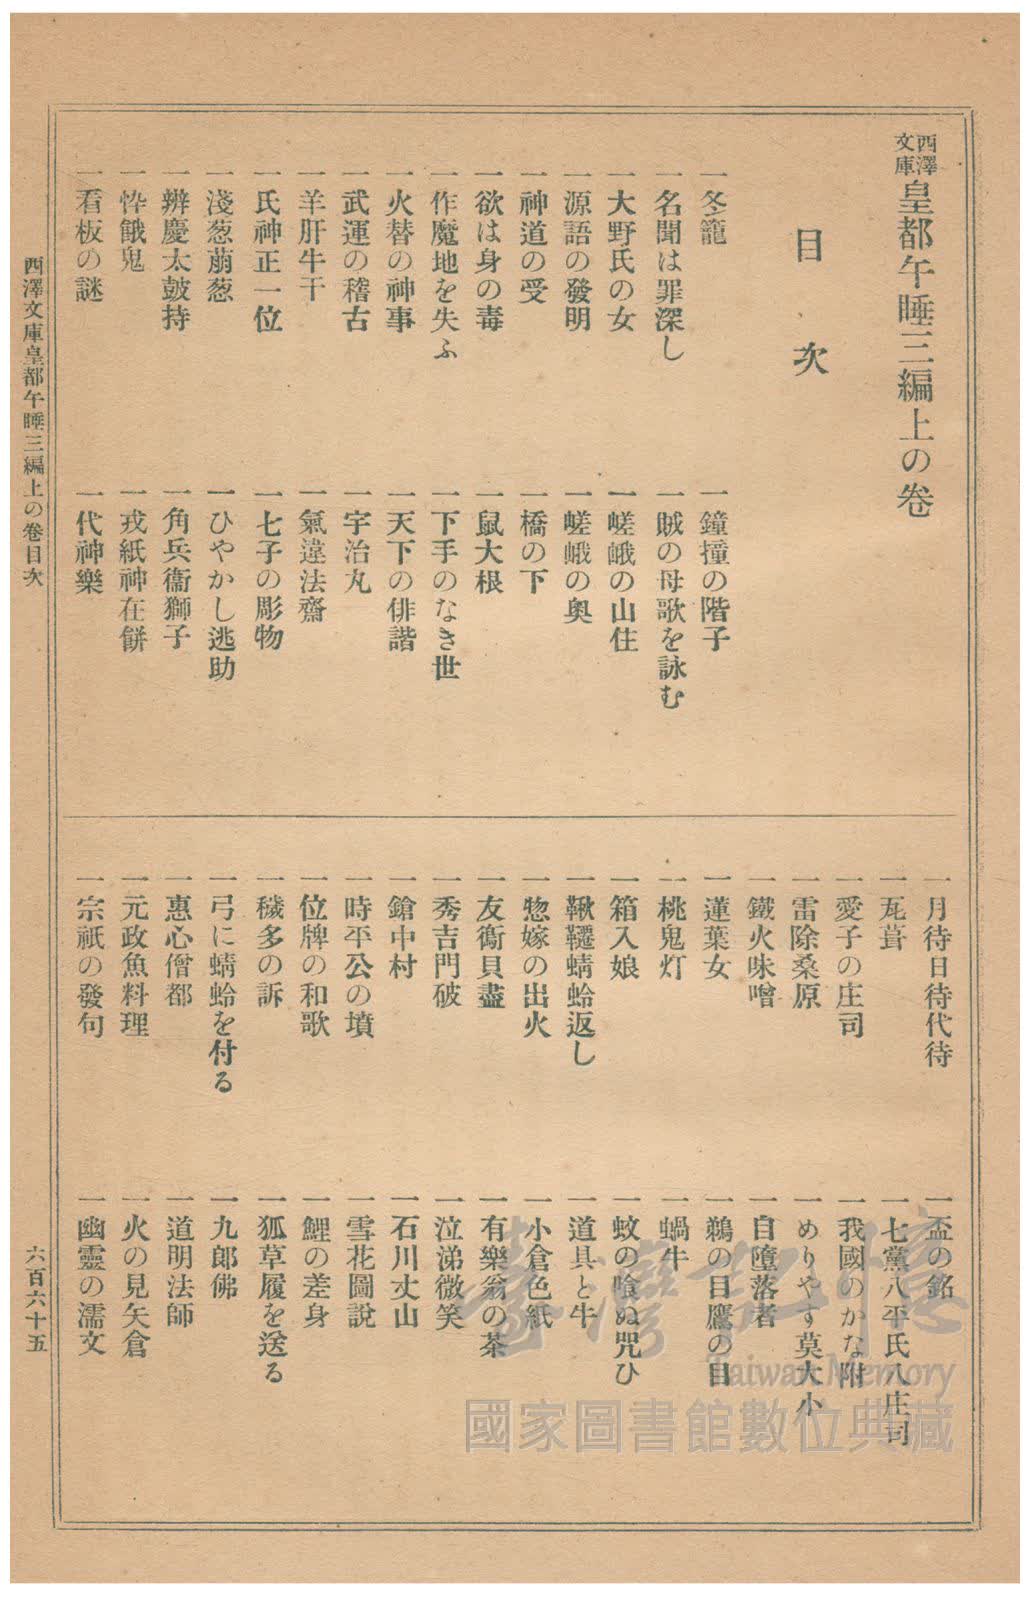 西澤文庫 皇都午睡三編上の卷
目次
一冬籠
一鐘撞の階子
一名聞は罪深し
一賊の母歌を詠む
一大野氏の女
一嵯峨の山住
一源語の發明
一嵯峨の奥
一神道の受
一橋の下
一欲は身の毒
一鼠大根
一作魔地を失ふ
一下手のなき世
一火替の神事
一天下の俳諧
一武運の稽古
一宇治丸
一羊肝牛干
一氣違法齋
一氏神正一位
一七子の彫物
一淺葱萠葱
一ひやかし逃助
一辨慶太鼓持
一角兵衞獅子
一悴餓鬼
一戎紙神在餅
一看板の謎
一代神樂
一月待日待代待
一盃の銘
一瓦葺
一七黨八平氏八庄司
一愛子の庄司
一我國のかな附
一雷除桑原
一めりやす莫大小
一鐵火味噌
一自墮落者
一蓮葉女
一鵜の目鷹の目
一桃鬼灯
一蝸牛
一箱入娘
一蚊の喰ぬ咒ひ
一鞦韆蜻蛉返し
一道具と牛
一惣嫁の出火
一小倉色紙
一友衞貝盡
一有樂翁の茶
一秀吉門破
一泣涕微笑
一鎗中村
一石川丈山
一時平公の墳
一雪花圖說
一位牌の和歌
一鯉の差身
一穢多の訴
一狐草履を送る
一弓に蜻蛉を付る
一九郞佛
一惠心僧都
一道明法師
一元政魚料理
一火の見矢倉
一宗祇の發句
一幽靈の濡文
西澤文庫皇都午睡三編上の卷目次
六百六十五
臺灣記憶
Taiwan Memory
國家圖書館數位典藏